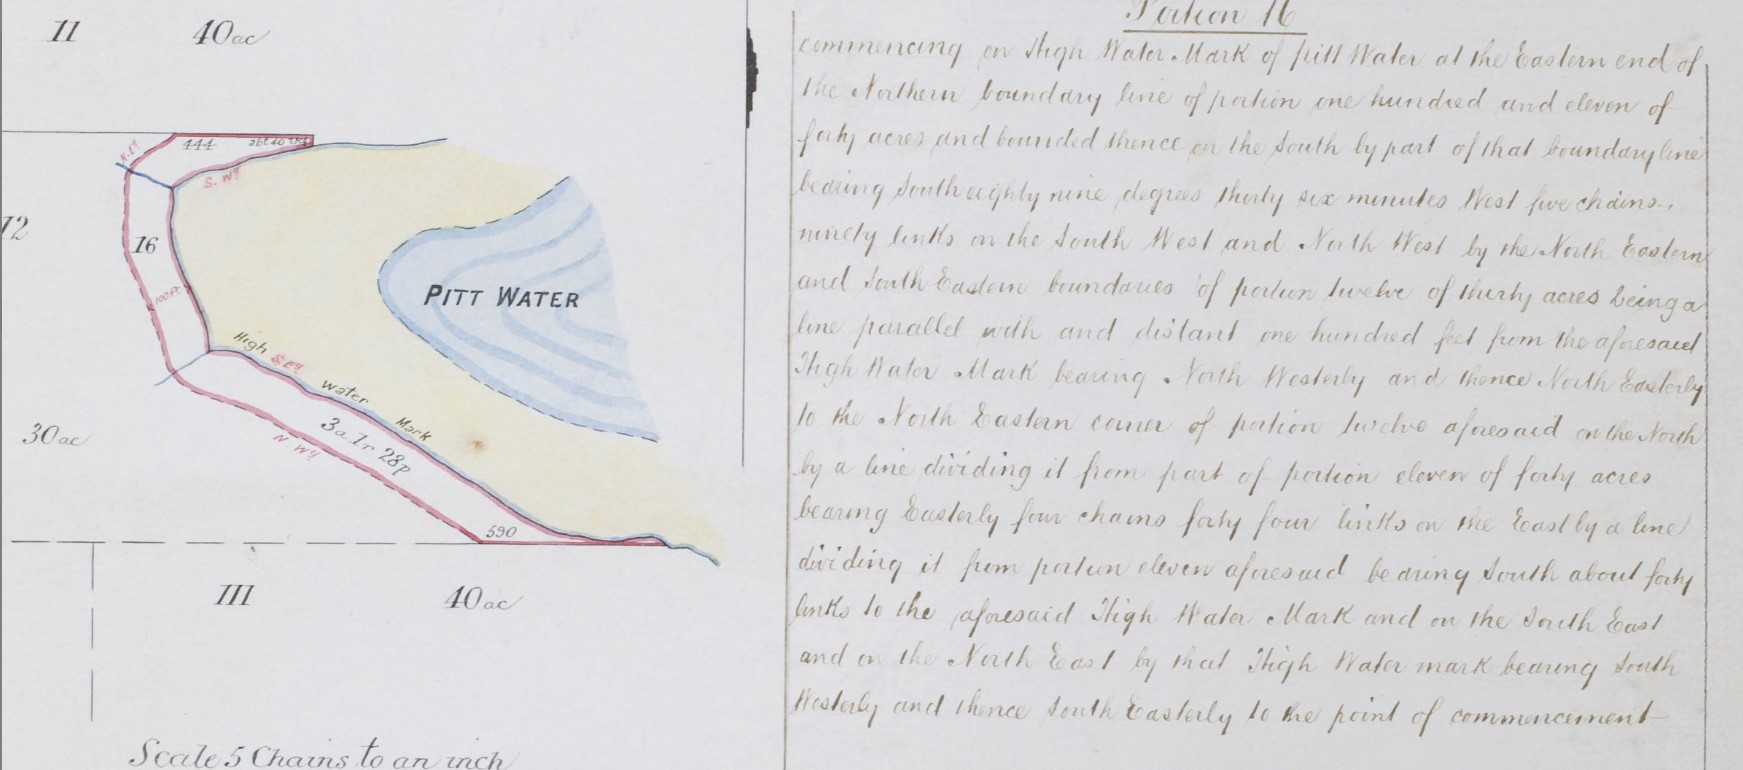 II 40ac
444 abt 40 lks
N.Ely
S. Wly
12
16
100ft
PITT WATER
High Water Mark
S.Ely
3a 1r 28p
30ac
N Wly
590
III 40ac
Scale 5 Chains to an inch
Portion 16
commencing on High Water Mark of pitt Water at the Eastern end of
the Northern boundary line of portion one hundred and eleven of
forty acres and bounded thence on the South by part of that boundary line
bearing South eighty nine degrees thirty six minutes West five chains
ninety links on the South West and North West by the North Eastern
and South Eastern boundaries of portion twelve of thirty acres being a
line parallel with and distant one hundred feet from the aforesaid
High Water Mark bearing North Westerly and thence North Easterly
to the North Eastern corner of portion twelve aforesaid on the North
by a line dividing it from part of portion eleven of forty acres
bearing Easterly four chains forty four links on the East by a line
dividing it from portion eleven aforesaid bearing South about forty
links to the aforesaid High Water Mark and on the South East
and on the North East by that High Water mark bearing South
Westerly and thence South Easterly to the point of commencement